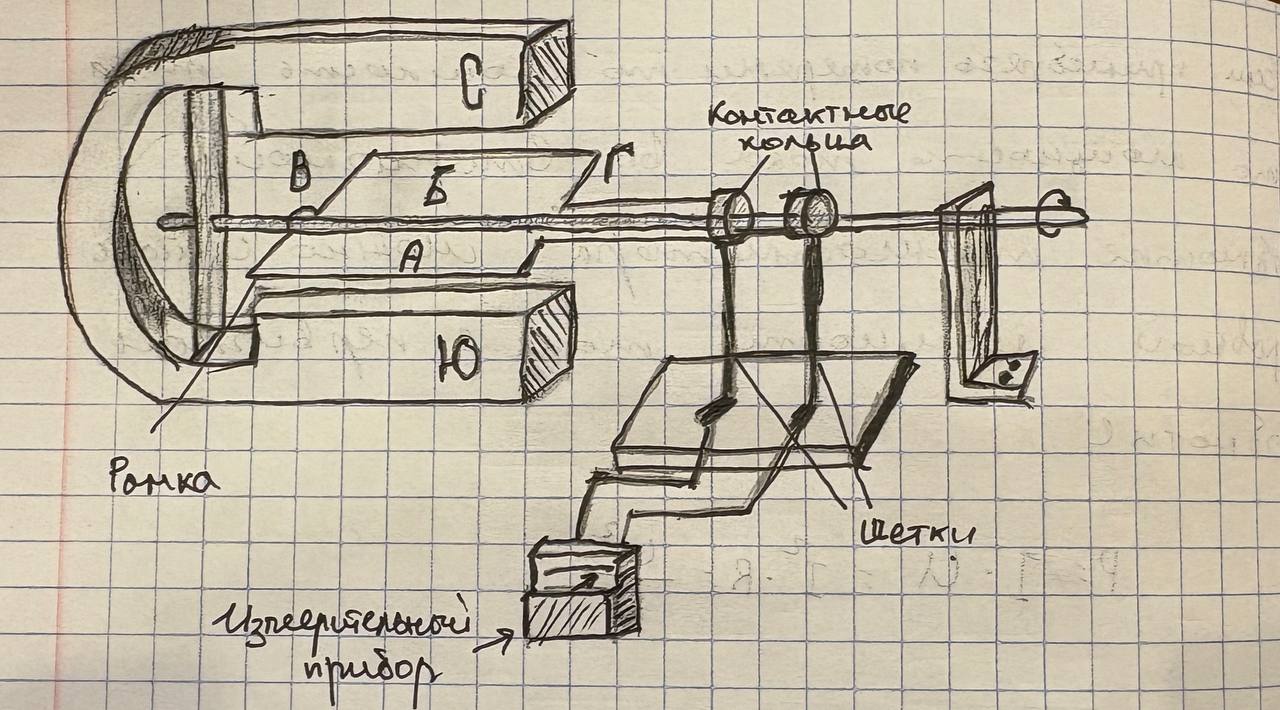 С
Контактные
кольца
В
Г
Б
А
Ю
Рамка
Щетки
Измерительный
прибор